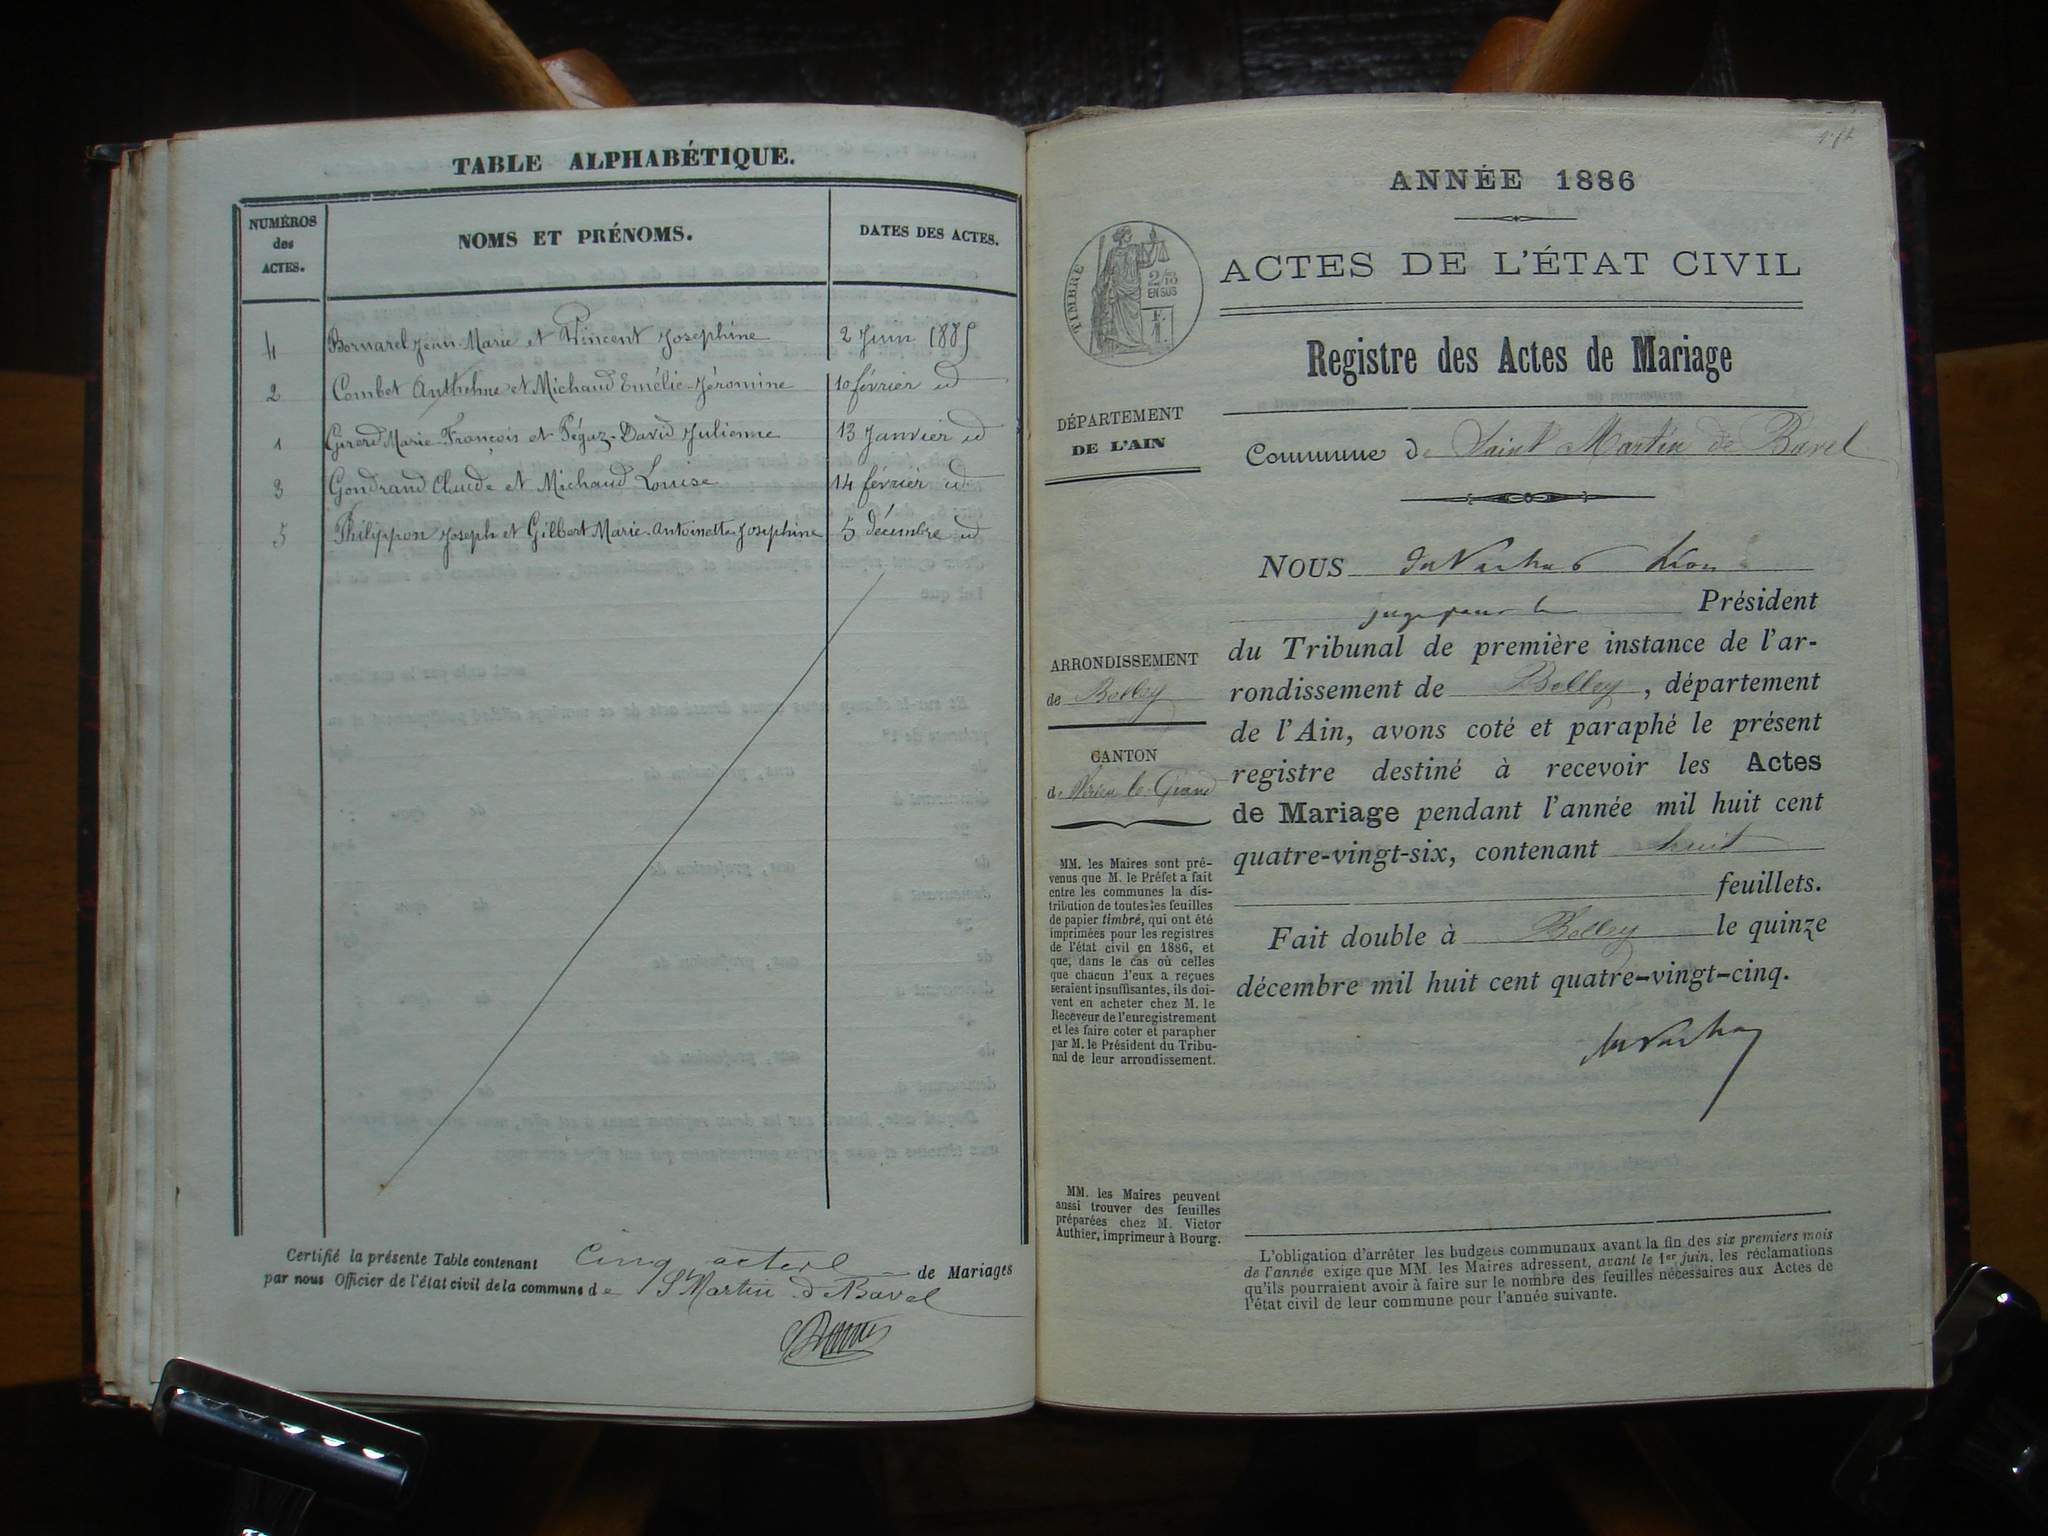 TABLE ALPHABÉTIQUE.
NUMÉROS des ACTES.
NOMS ET PRÉNOMS.
DATES DES ACTES.
4 Bornarel Jean-Marie et Vincent Josephine 2 Juin 1885
2 Combet Anthelme et Michaud Emélie-Jéromine 10 février id
1 Girerd Marie-François et Pégaz-David Julienne 13 Janvier id
3 Gondrand Claude et Michaud Louise 14 février id
5 Philippon Joseph et Gilbert Marie-Antoinette-Josephine 5 décembre id
Certifié la présente Table contenant Cinq actes de Mariages
par nous Officier de l'état civil de la commune de St Martin de Bavel
ANNÉE 1886
TIMBRE
2/10
EN SUS
ACTES DE L'ÉTAT CIVIL
Registre des Actes de Mariage
DÉPARTEMENT
DE L'AIN
Commune de Saint Martin de Bavel
NOUS
juge pour le Président
du Tribunal de première instance de l'ar-
rondissement de Belley, département
de l'Ain, avons coté et paraphé le présent
registre destiné à recevoir les Actes
de Mariage pendant l'année mil huit cent
quatre-vingt-six, contenant huit
feuillets.
Fait double à Belley le quinze
décembre mil huit cent quatre-vingt-cinq.
ARRONDISSEMENT
de Belley
CANTON
de Virieu le Grand
MM. les Maires sont pré-
venus que M. le Préfet a fait
entre les communes la dis-
tribution de toutes les feuilles
de papier timbré, qui ont été
imprimées pour les registres
de l'état civil en 1886, et
que, dans le cas où celles
que chacun d'eux a reçues
seraient insuffisantes, ils doi-
vent en acheter chez M. le
Receveur de l'enregistrement
et les faire coter et parapher
par M. le Président du Tribu-
nal de leur arrondissement.
MM. les Maires peuvent
aussi trouver des feuilles
préparées chez M. Victor
Authier, imprimeur à Bourg.
L'obligation d'arrêter les budgets communaux avant la fin des six premiers mois
de l'année exige que MM. les Maires adressent, avant le 1er juin, les réclamations
qu'ils pourraient avoir à faire sur le nombre des feuilles nécessaires aux Actes de
l'état civil de leur commune pour l'année suivante.